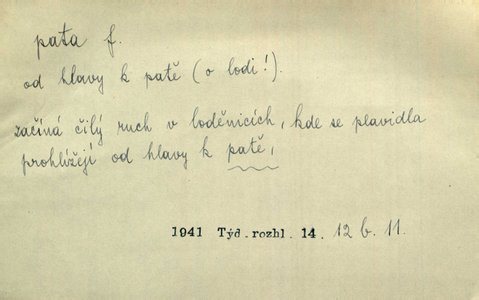 pata f.
od hlavy k patě (o lodi!).
začíná čilý ruch v loděnicích, kde se plavidla
prohlížejí od hlavy k patě,
1941 Týd.rozhl. 14. 12 b. 11.